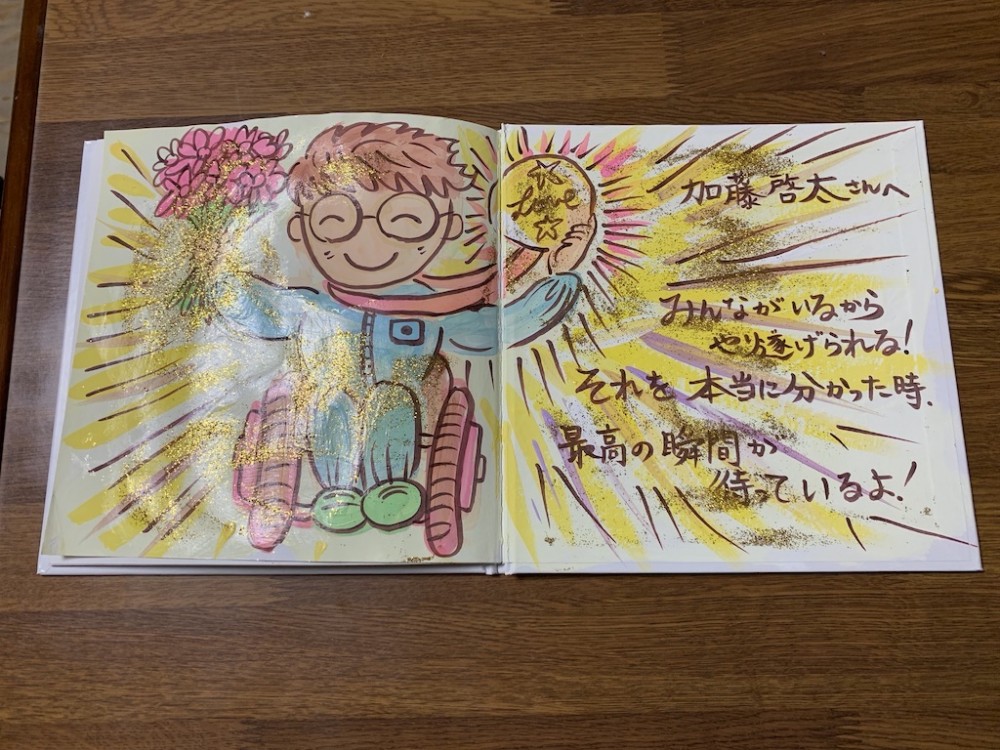 Love
加藤啓太さんへ
みんながいるから
やり遂げられる!
それを本当に分かった時、
最高の瞬間が
待っているよ!